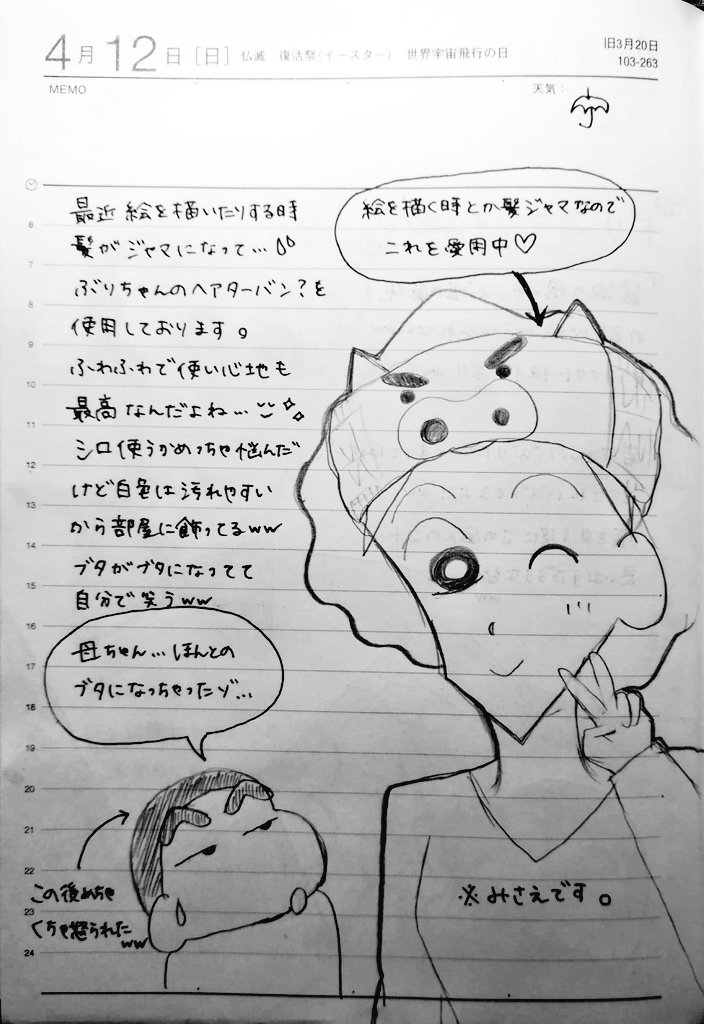 4月12日[日] 仏滅 復活祭(イースター) 世界宇宙飛行の日
旧3月20日
103-263
MEMO
天気:
最近 絵を描いたりする時
髪がジャマになって…
ぶりちゃんのヘアターバン?を
使用しております。
ふわふわで使い心地も
最高なんだよね…
シロ使うかめっちゃ悩んだ
けど白色は汚れやすい
から部屋に飾ってるww
ブタがブタになってて
自分で笑うww
絵を描く時とか髪ジャマなので
これを愛用中♡
母ちゃん…ほんとの
ブタになっちゃったゾ…
この後めちゃ
くちゃ怒られたww
※みさえです。
6
7
8
9
10
11
12
13
14
15
16
17
18
19
20
21
22
23
24